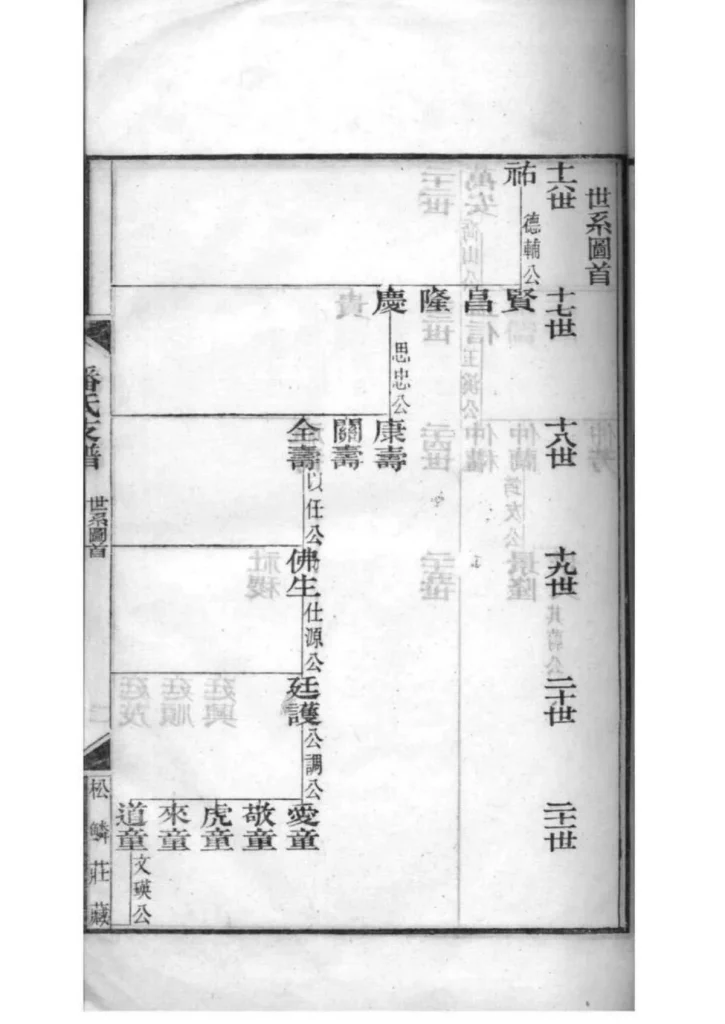 世系圖首
十六世
祐
德輔公
十七世
賢
昌
隆
慶
思忠公
十八世
康壽
關壽
全壽
以任公
十九世
佛生
仕源公
二十世
廷護
公調公
二十一世
愛童
敬童
虎童
來童
道童
文瑛公
潘氏支譜
世系圖首
松鱗莊藏